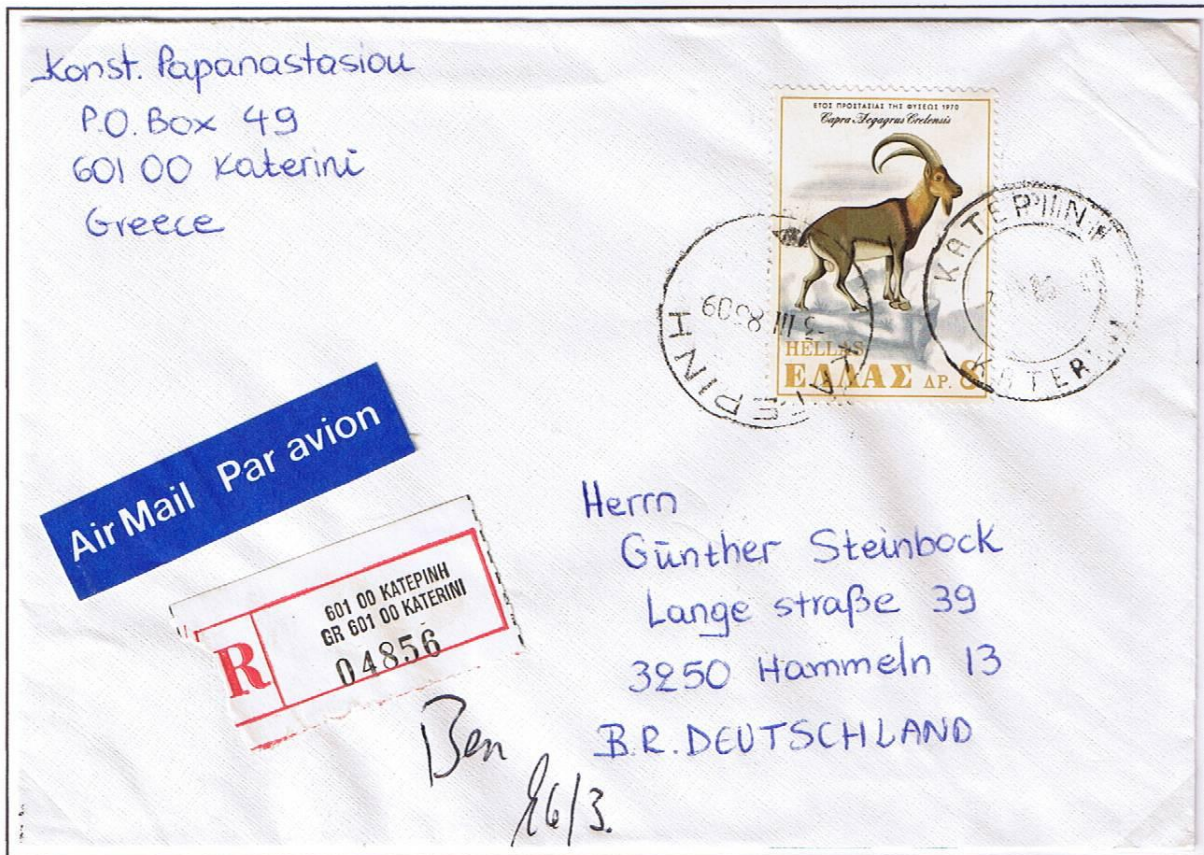 Konst. Papanastasiou
P.O. Box 49
601 00 Katerini
Greece
ΕΤΟΣ ΠΡΟΣΤΑΣΙΑΣ ΤΗΣ ΦΥΣΕΩΣ 1970
Capra Aegagrus Cretensis
HELLAS
ΕΛΛΑΣ ΔΡ. 8
ΚΑΤΕΡΙΝΗ
ΚΑΤΕΡΙΝΗ
KATERINI
Air Mail Par avion
R
601 00 ΚΑΤΕΡΙΝΗ
GR 601 00 KATERINI
04856
Herrn
Günther Steinbock
Lange straße 39
3250 Hammeln 13
B.R. DEUTSCHLAND
Ben
26/3.